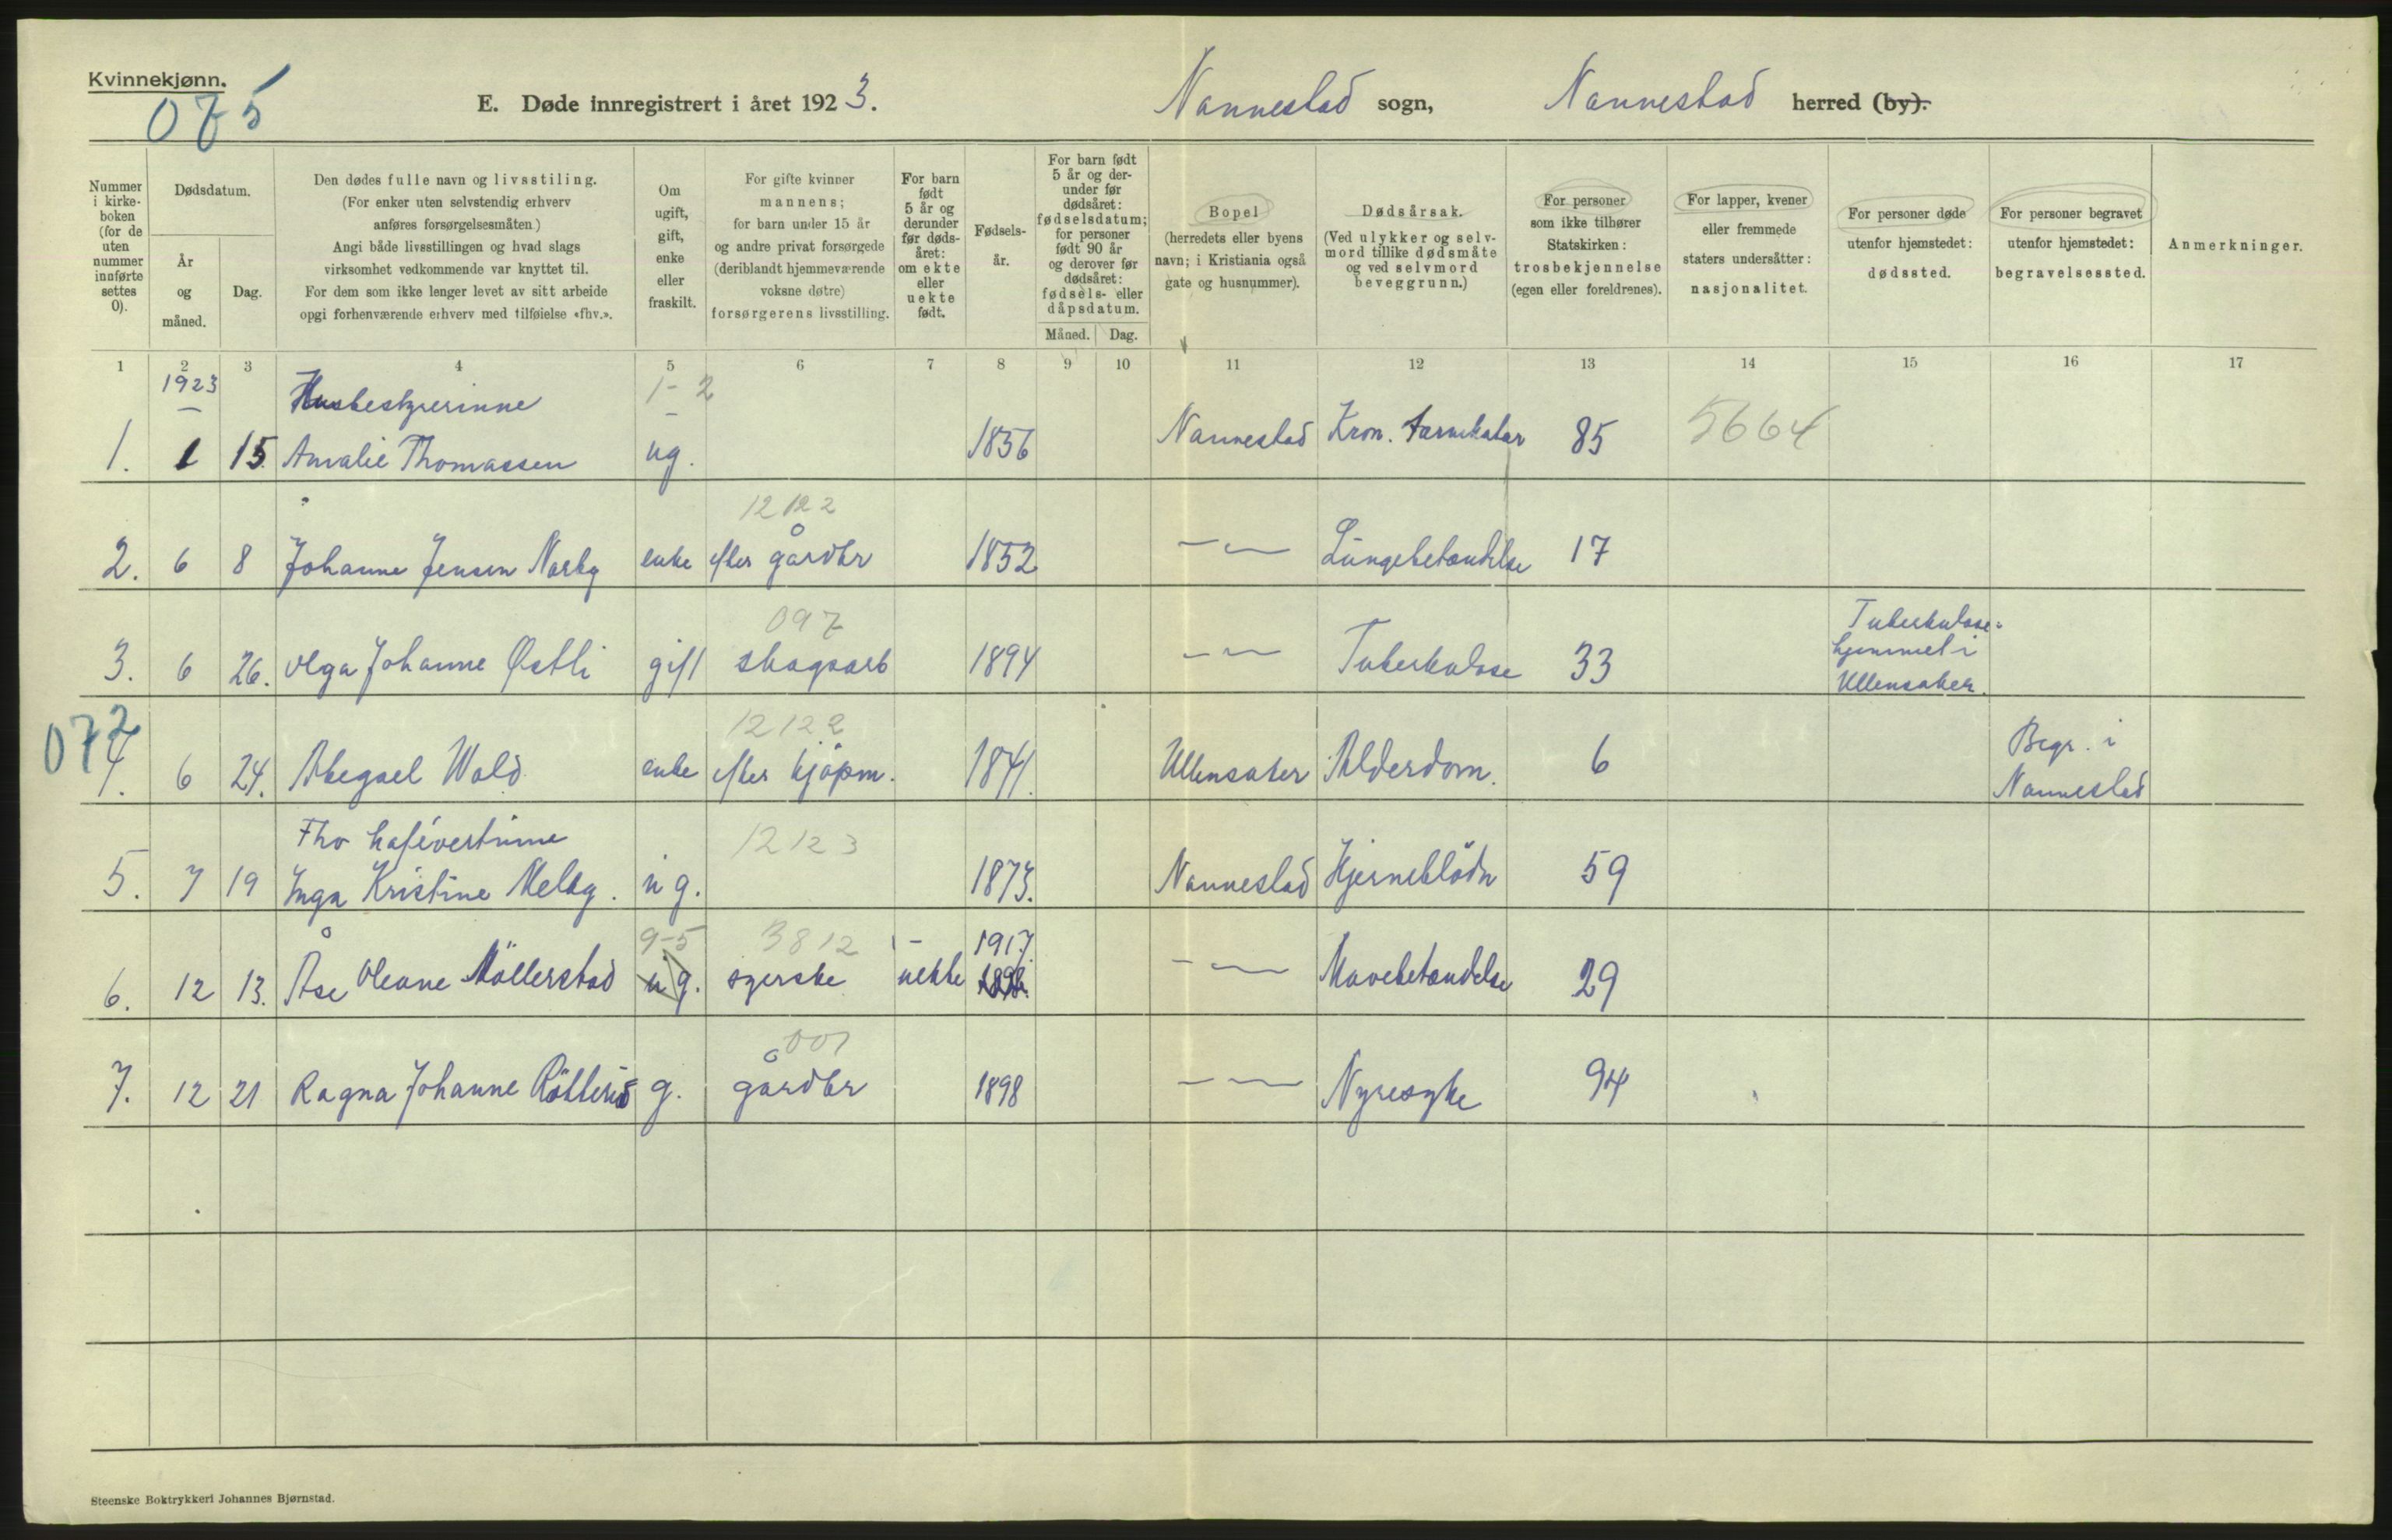 Kvinnekjønn.
075
E. Døde innregistrert i året 1923. Nannestad sogn, Nannestad herred (by).
Nummer i kirke-boken (for de uten nummer innførte settes 0).
Dødsdatum.
År og måned.
Dag.
Den dødes fulle navn og livsstiling.
(For enker uten selvstendig erhverv
anføres forsørgelsesmåten)
Angi både livsstillingen og hvad slags
virksomhet vedkommende var knyttet til.
For dem som ikke lenger levet av sitt arbeide
opgi forhenværende erhverv med tilføielse «fhv.».
Om ugift, gift, enke eller fraskilt.
For gifte kvinner
mannens;
for barn under 15 år
og andre privat forsørgede
(deriblandt hjemmeværende
voksne døtre)
forsørgerens livsstilling.
For barn født 5 år og derunder før døds-året: om ekte eller uekte født.
Fødsels-år.
For barn født 5 år og der-under før dødsåret: fødselsdatum; for personer født 90 år og derover før dødsåret: fødsels- eller dåpsdatum.
Måned. Dag.
Bopel
(herredets eller byens
navn; i Kristiania også
gate og husnummer).
Dødsårsak.
(Ved ulykker og selv-
mord tillike dødsmåte
og ved selvmord
beveggrunn.)
For personer
som ikke tilhører
Statskirken:
trosbekjennelse
(egen eller foreldrenes).
For lapper, kvener
eller fremmede
staters undersåtter:
nasjonalitet.
For personer døde
utenfor hjemstedet:
dødssted.
For personer begravet
utenfor hjemstedet:
begravelsessted.
Anmerkninger.
1 2 3 4 5 6 7 8 9 10 11 12 13 14 15 16 17
1923 Husbestyrerinne 1- 2
1. 1 15. Amalie Thomassen ug. 1856 Nannestad Kron. tarmkatar 85 5664
12122
2. 6 8 Johanne Jensen Norby enke efter gårdbr 1852 -〃- Lungebetændelse 17
097
3. 6 26. Olga Johanne Østli gift skogsarb 1894 -〃- Tuberkulose 33 Tuberkulose-
hjemmet i
Ullensaker.
072
12122
4. 6 24. Abegael Wold enke efter kjöpm. 1841. Ullensaker Alderdom. 6 Begr. i
Nannestad
Fhv kafévertinne 12123
5. 7 19 Inga Kristine Melby. ug. 1873. Nannestad Hjerneblödn 59
9-5 3812 1- 1917.
6. 12 13. Åse Oleane Möllerstad ug. syerske uekte -〃- Mavebetændelse 29
001
7. 12 21 Ragna Johanne g. gårdbr 1898 -〃- Nyresyke 94
Steenske Boktrykkeri Johannes Bjørnstad.